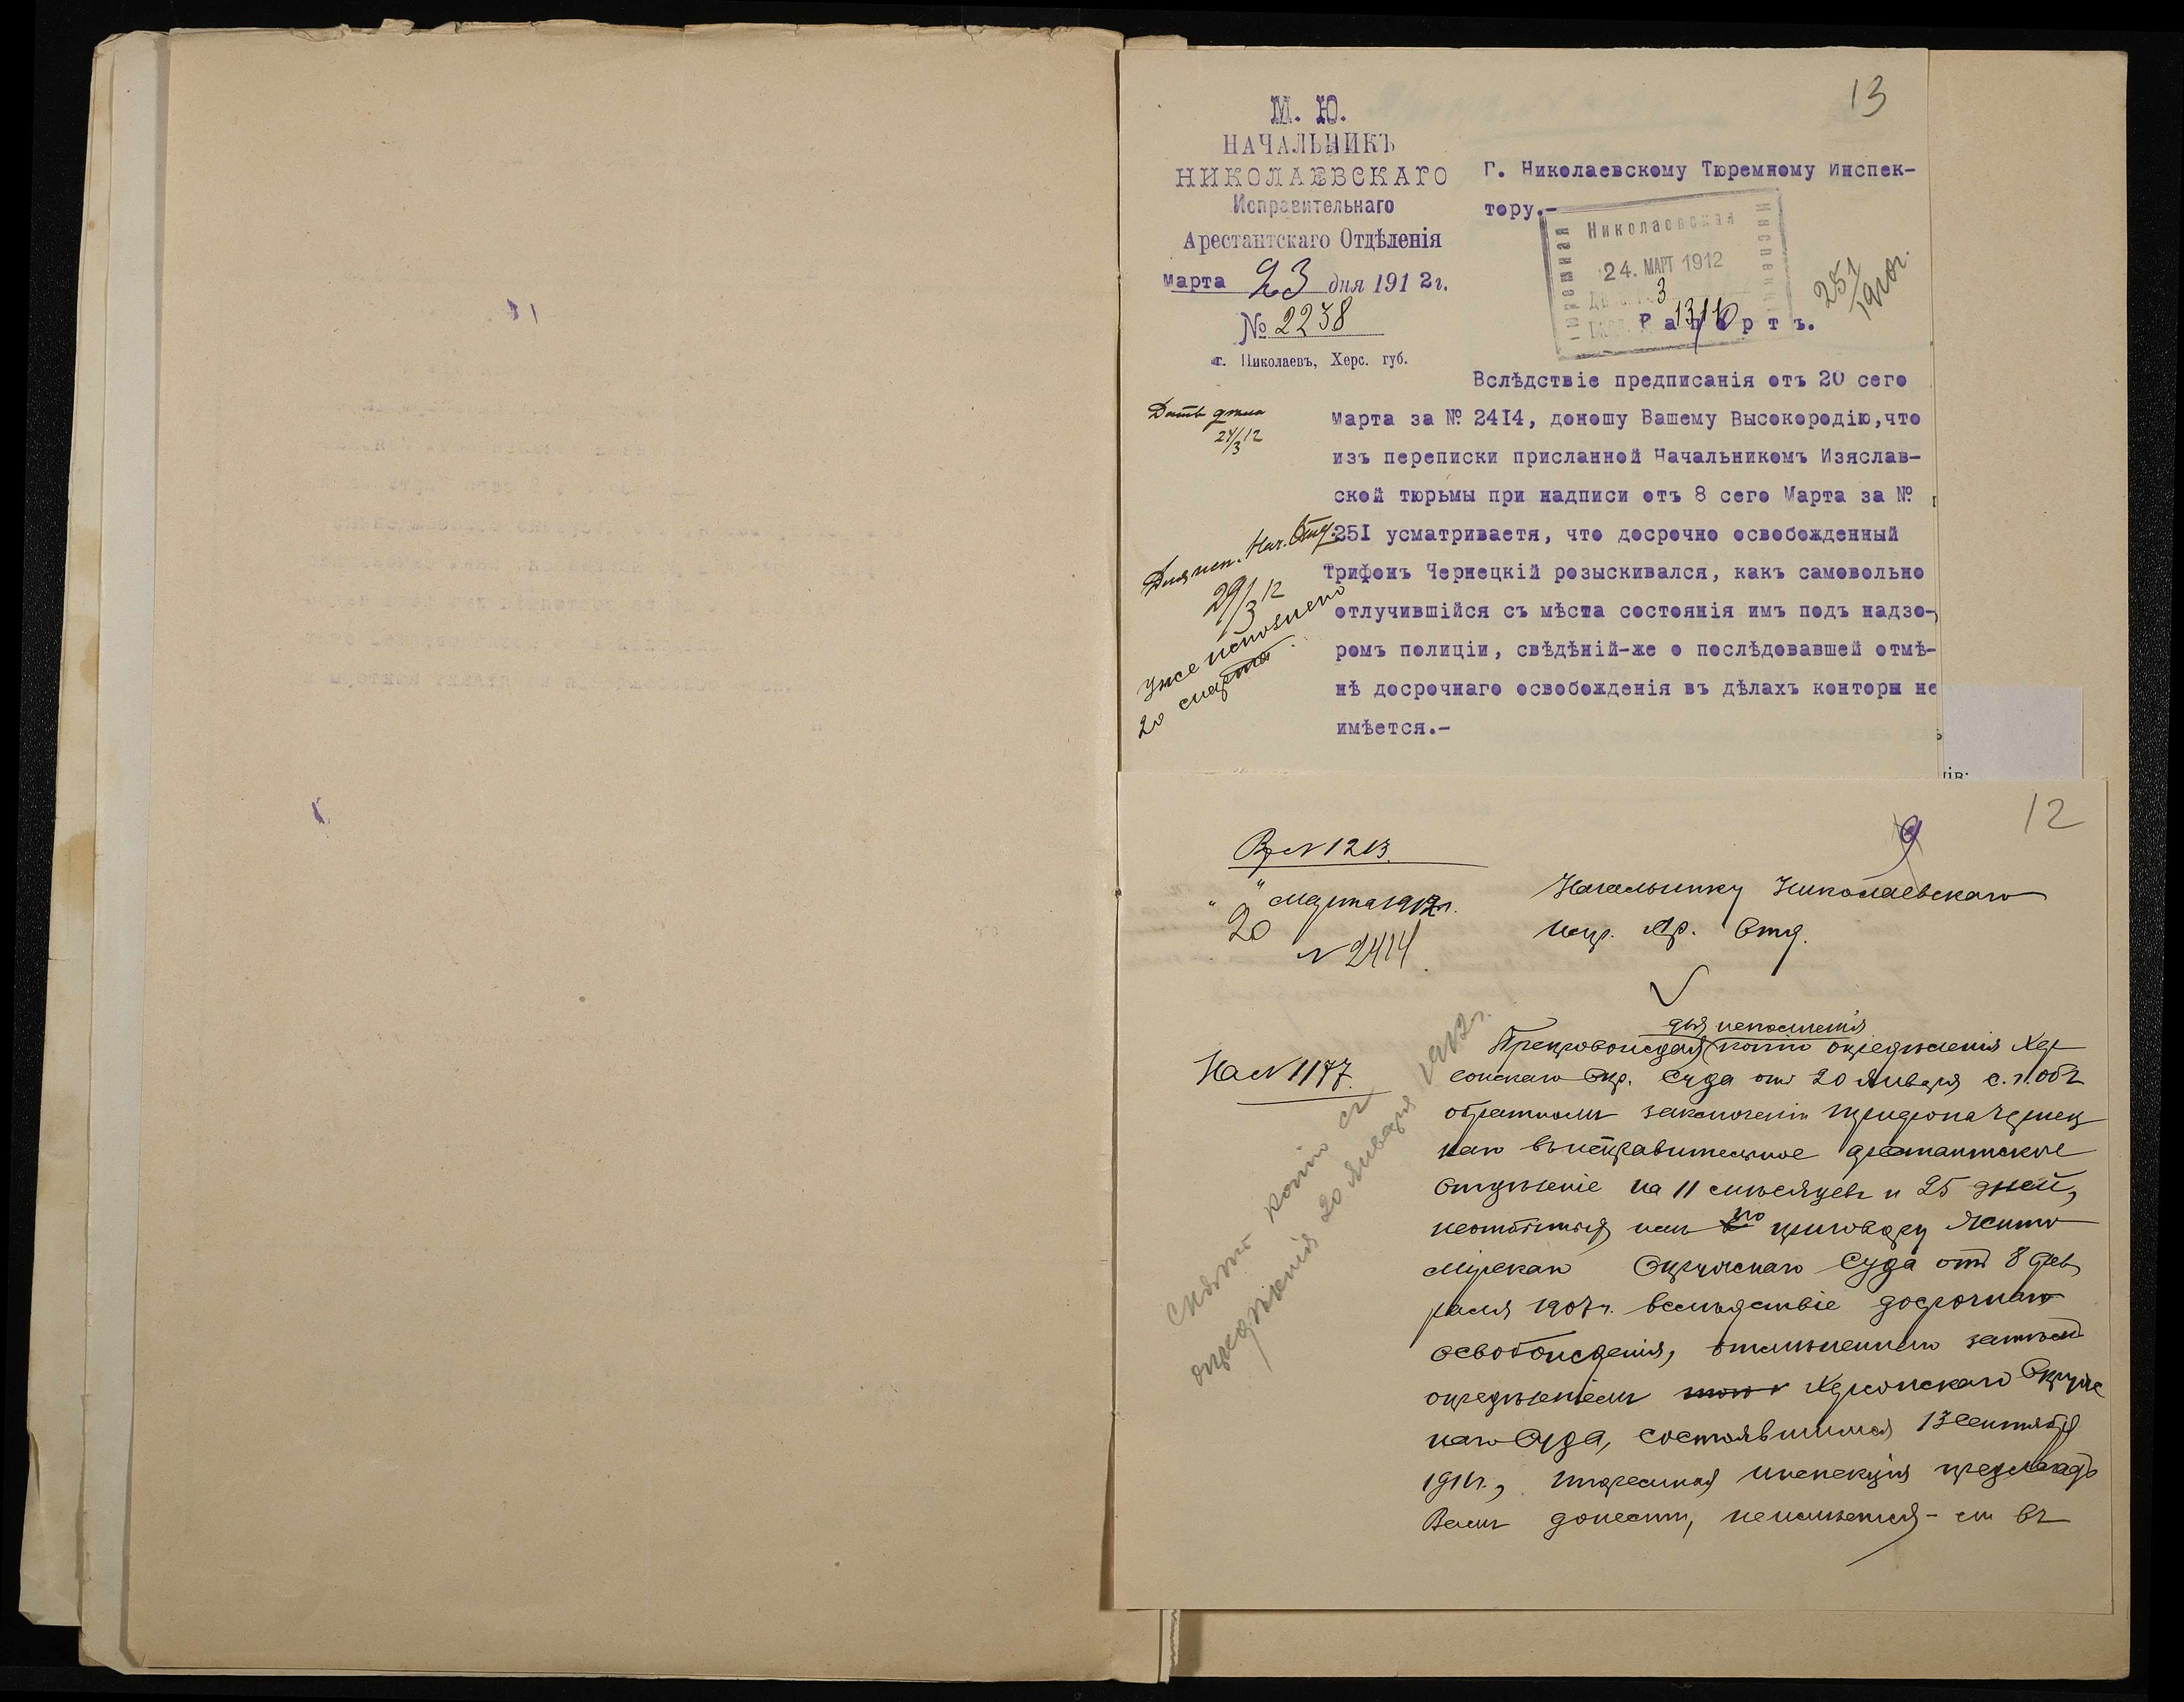 13
М. Ю.
НАЧАЛЬНИКЪ
НИКОЛАЕВСКАГО
Исправительнаго
Арестантскаго Отдѣленія
марта 23 дня 1912г.
№ 2238
г. Николаевъ, Херс. губ.
Г. Николаевскому Тюремному Инспек-
тору.-
Николаевская
Тюремная
Инспекція
24. МАРТ 1912
Рапортъ.
251
1910г.
Вслѣдствіе предписанія отъ 20 сего
марта за № 24I4, доношу Вашему Высокородію,что
изъ переписки присланной Начальникомъ Изяслав-
ской тюрьмы при надписи отъ 8 сего Марта за №
25I усматриваетя, что досрочно освобожденный
Трифонъ Чернецкій розыскивался, какъ самовольно
отлучившійся съ мѣста состоянія имъ подъ надзо-
ромъ полиціи, свѣдѣній-же о послѣдовавшей отмѣ-
нѣ досрочнаго освобожденія въ дѣлахъ конторы не
имѣется.-
24/3 12
Нач. Отд.
29/3 12
уже исполнено
20 марта.
12
9
Вр. N 1213.
" " марта 1912г.
20
N 2414.
Начальнику Николаевскаго
испр. Ар. Отд.
На N 1177.
Снята копія съ
опредѣленія 20 января 1912г.
для исполненія
Препровождая копію опредѣленія Хер
сонскаго Окр. Суда отъ 20 Января с. г. объ
обратномъ заключеніи Трифона Чернец
каго въ исправительное арестантское
отдѣленіе на 11 мѣсяцевъ и 25 дней,
неотбытыя имъ по приговору Жито
мірскаго Окружнаго Суда отъ 8 Фев
раля 1907г. вслѣдствіе досрочнаго
освобожденія, отмѣненнаго затѣмъ
опредѣленіемъ Херсонскаго Окруж
наго Суда, состоявшимся 13 Сентября
1911г., тюремная инспекція предлагаетъ
Вамъ донести, не имѣется-ли въ